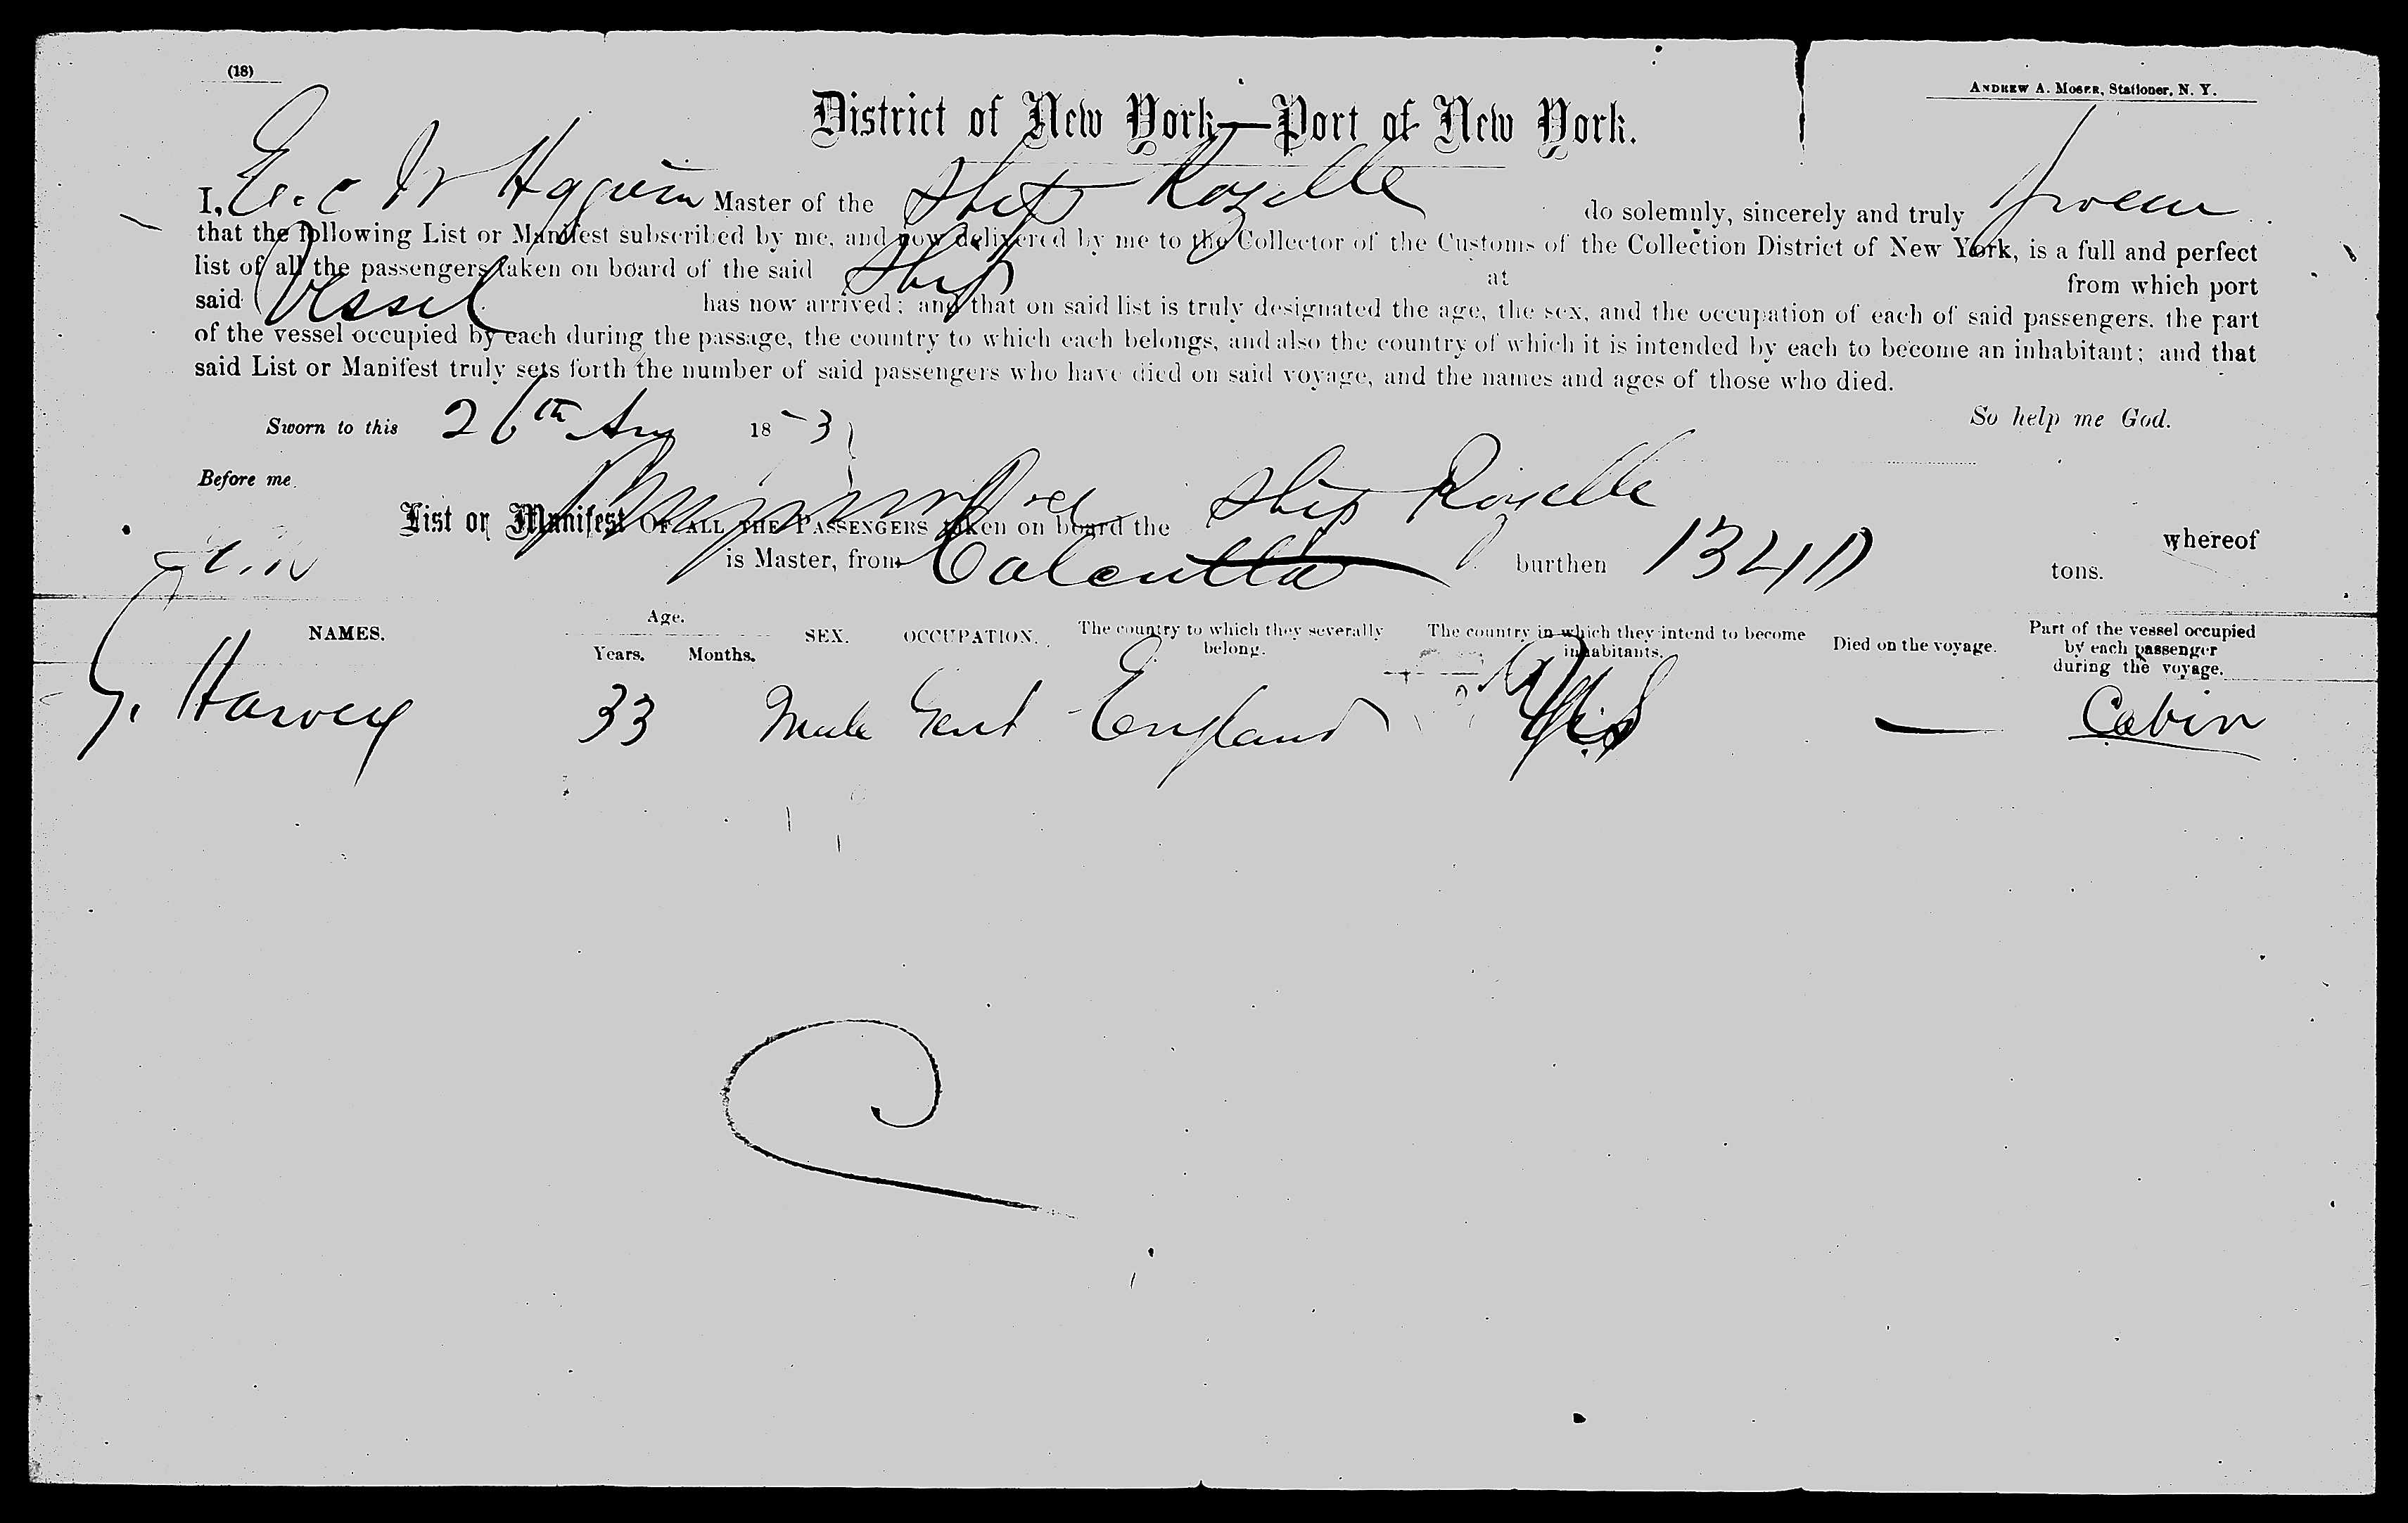 (18)
ANDREW A. MOSER, Stationer, N. Y.
District of New York—Port of New York.
I, Master of the Ship Rozelle do solemnly, sincerely and truly swear
that the following List or Manifest subscribed by me, and now delivered by me to the Collector of the Customs of the Collection District of New York, is a full and perfect
list of all the passengers taken on board of the said Ship at from which port
said Vessel has now arrived; and that on said list is truly designated the age, the sex, and the occupation of each of said passengers, the part
of the vessel occupied by each during the passage, the country to which each belongs, and also the country of which it is intended by each to become an inhabitant; and that
said List or Manifest truly sets forth the number of said passengers who have died on said voyage, and the names and ages of those who died.
So help me God.
Sworn to this 26th 18 3
Before me
List or Manifest OF ALL THE PASSENGERS taken on board the Ship Rozelle whereof
is Master, from Calcutta burthen tons.
NAMES. Age. Years. Months. SEX. OCCUPATION. The country to which they severally belong. The country in which they intend to become inhabitants. Died on the voyage. Part of the vessel occupied by each passenger during the voyage.
G. Harvey 33 Male Gent England — Cabin